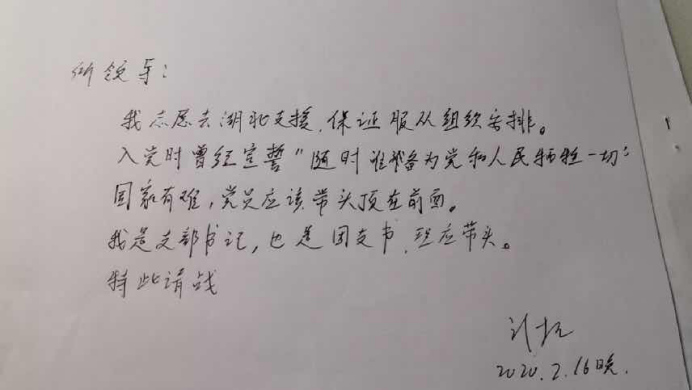 所领导:
我志愿去湖北支援,保证服从组织安排。
入党时曾经宣誓“随时准备为党和人民牺牲一切”
国家有难,党员应该带头顶在前面。
我是支部书记,也是团支书,理应带头。
特此请战
2020.2.16晚.